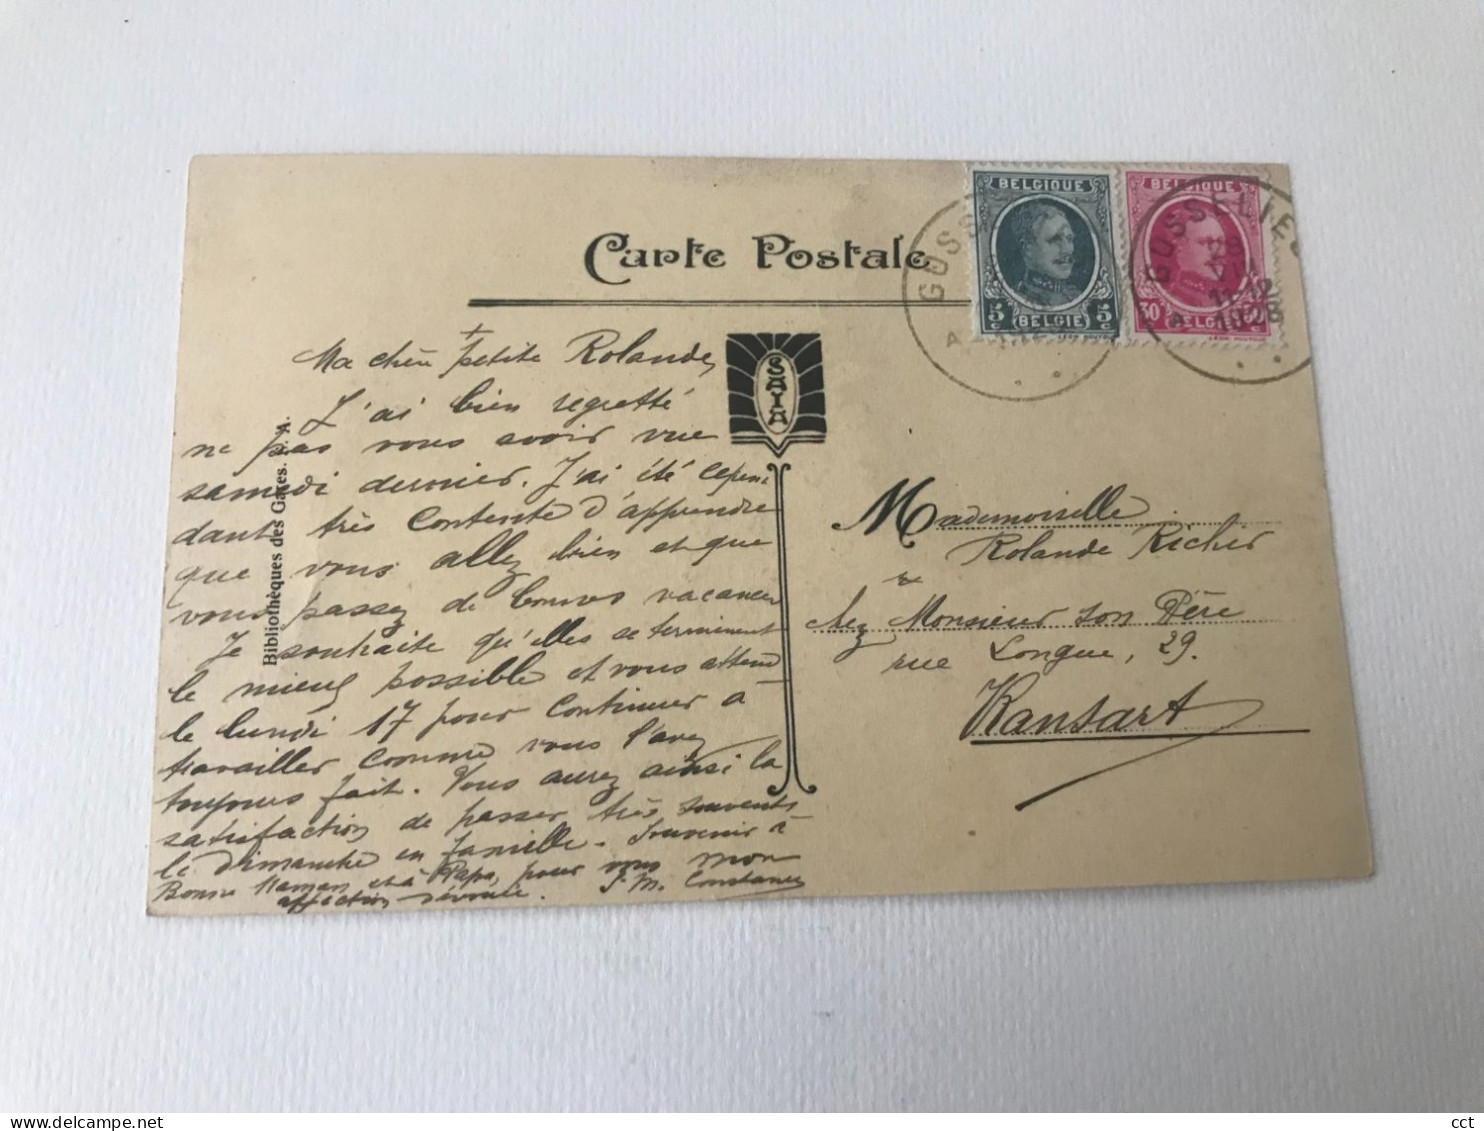 Carte Postale
BELGIQUE
5c BELGIE 5c
BELGIQUE
30 BELGIE
GOSSELIES
11-12
1928
A
GOSS
A
SAIA
Bibliothèques des Gares. S. A.
+
Ma chère petite Rolande,
J'ai bien regretté
ne pas vous avoir vue
samedi dernier. J'ai été cepen
dant très contente d'apprendre
que vous allez bien et que
vous passez de bonnes vacances
Je souhaite qu'elles se terminent
le mieux possible et vous attend
le lundi 17 pour continuer à
travailler comme vous l'avez
toujours fait. Vous aurez ainsi la
satisfaction de passer très souvents
le dimanche en famille. Souvenir à
Bonne Maman et à Papa, pour vous mon
affection dévouée. S. M. Constance
Mademoiselle
Rolande Richir
chez Monsieur son Père
rue Longue, 29.
Ransart
cct